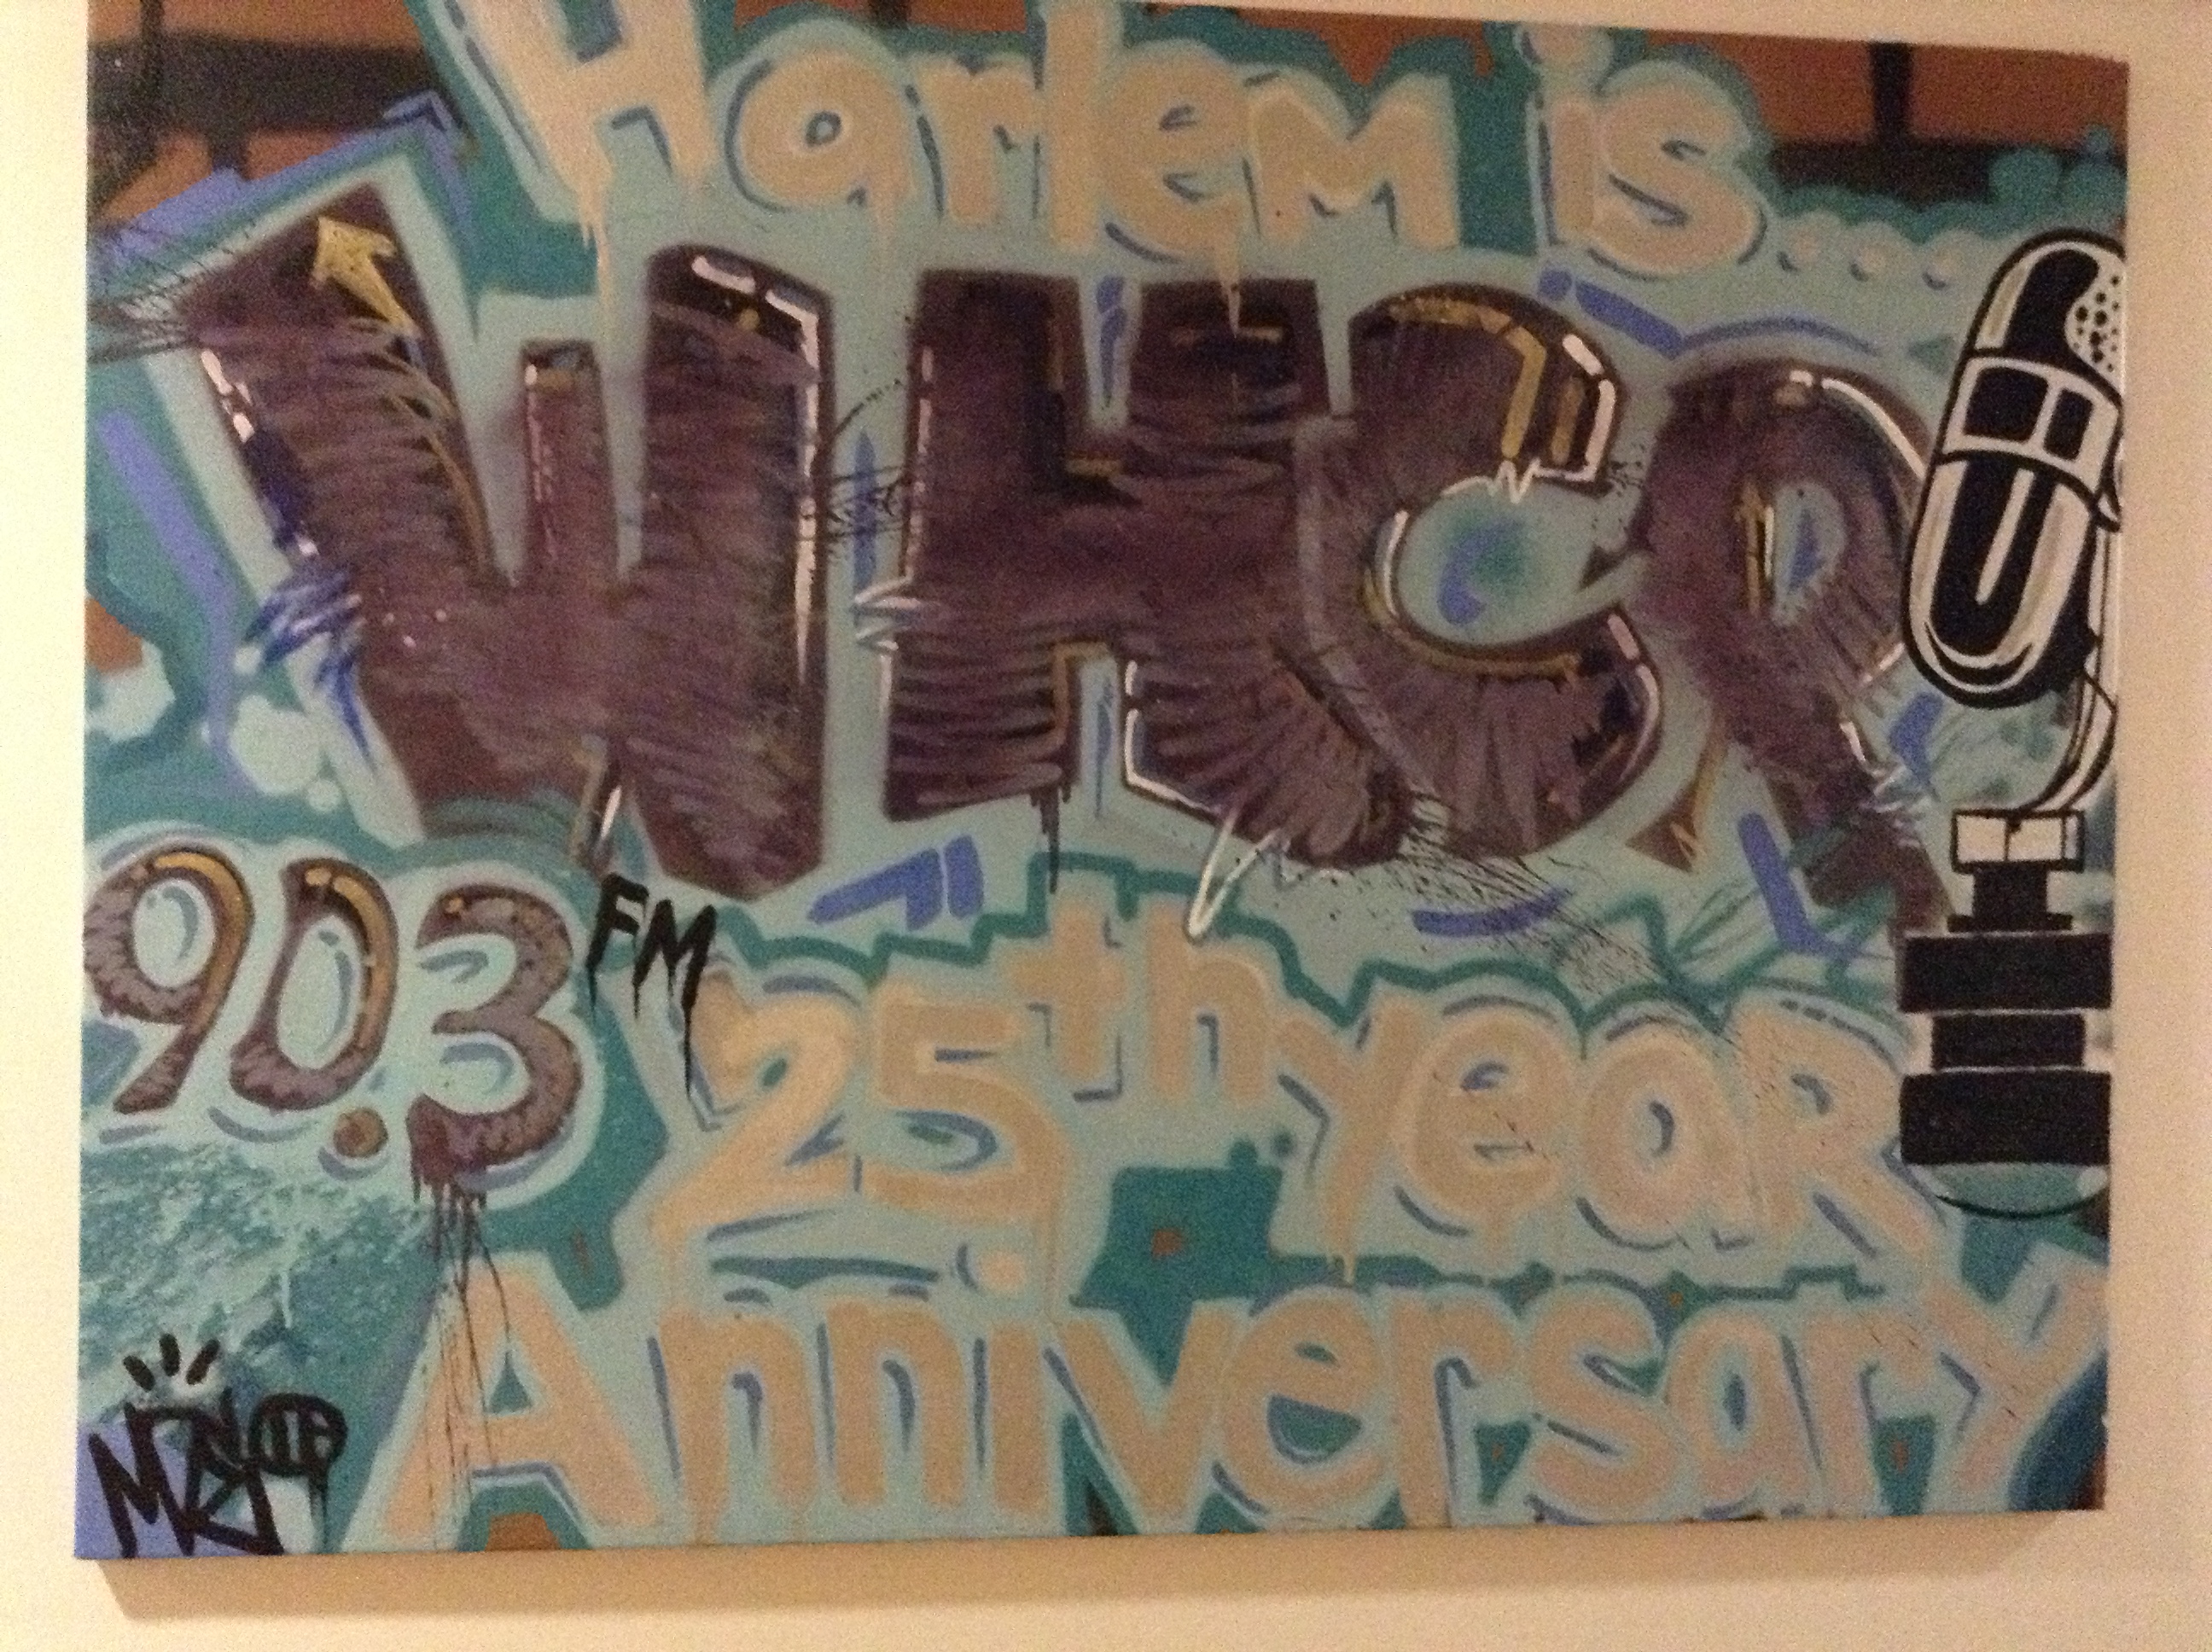 Harlem is....
WHCR
90.3 FM
25th Year
Anniversary